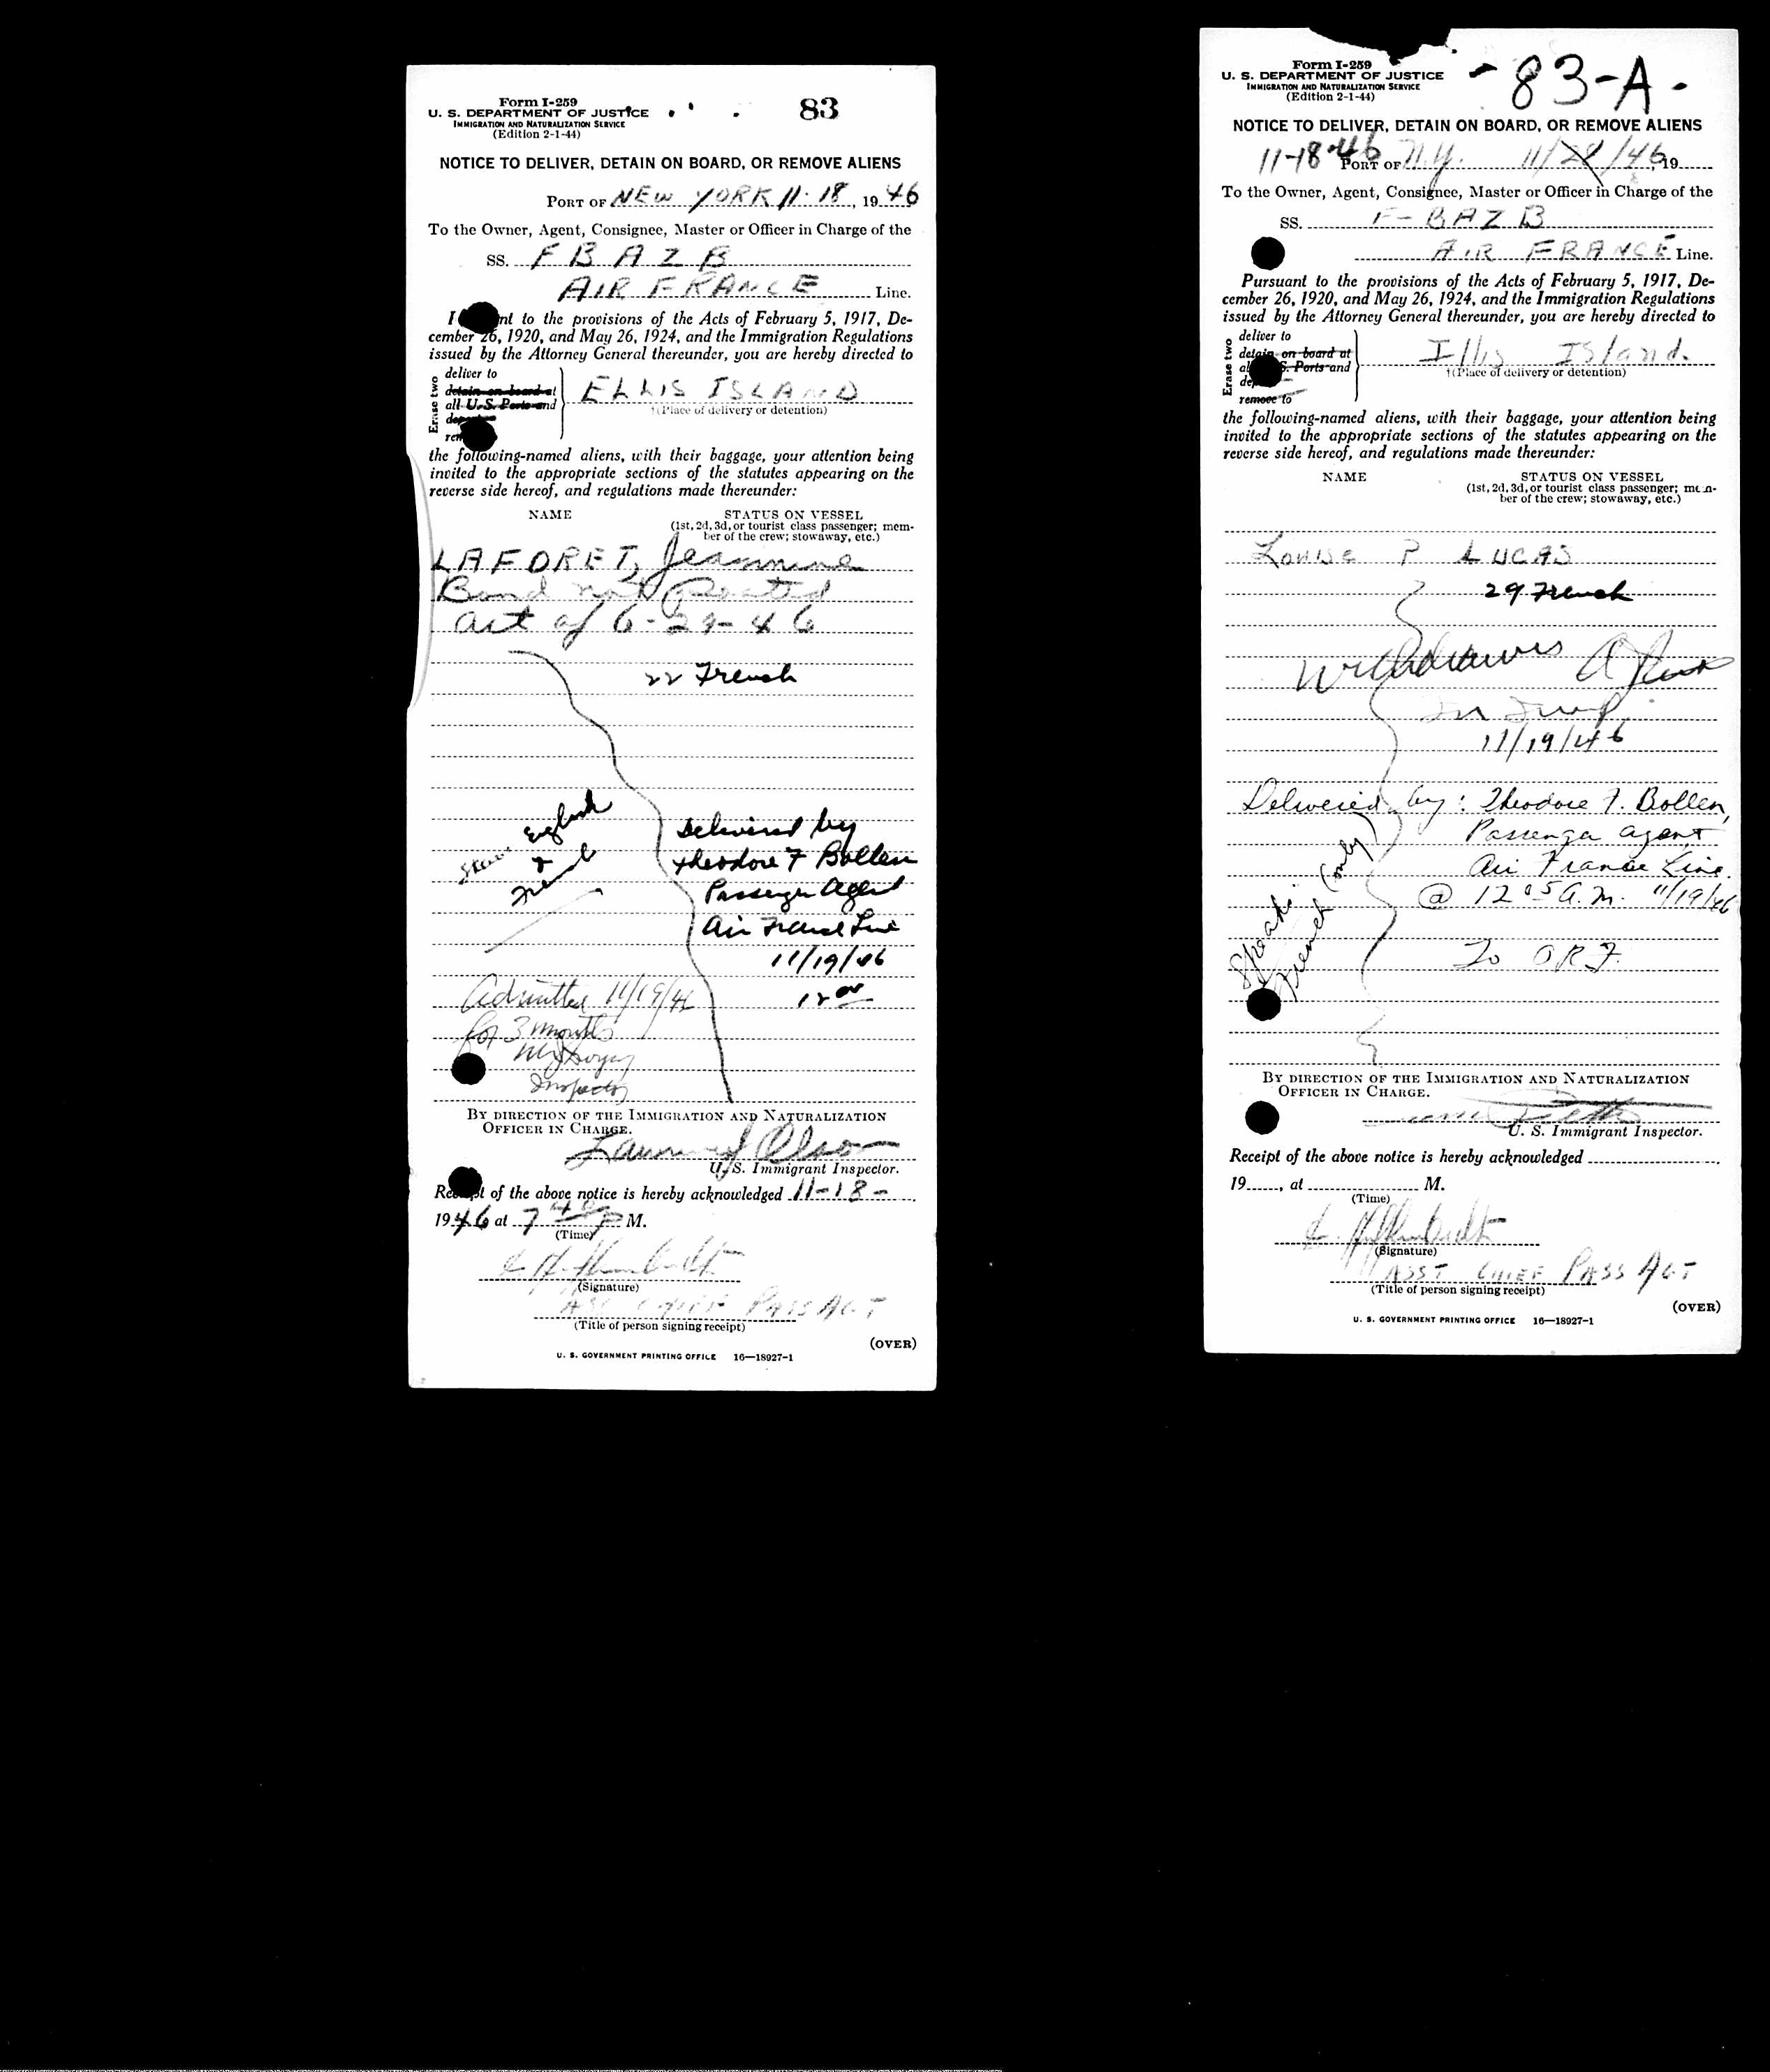 Form I-259
U. S. DEPARTMENT OF JUSTICE
IMMIGRATION AND NATURALIZATION SERVICE
(Edition 2-1-44)
83
NOTICE TO DELIVER, DETAIN ON BOARD, OR REMOVE ALIENS
PORT OF NEW YORK 11-18, 1946
To the Owner, Agent, Consignee, Master or Officer in Charge of the
SS. F B A Z B
AIR FRANCE Line.
nt to the provisions of the Acts of February 5, 1917, De-
cember 26, 1920, and May 26, 1924, and the Immigration Regulations
issued by the Attorney General thereunder, you are hereby directed to
Erase two
deliver to
detain on board at
all U.S. Ports and
ELLIS ISLAND
†(Place of delivery or detention)
the following-named aliens, with their baggage, your attention being
invited to the appropriate sections of the statutes appearing on the
reverse side hereof, and regulations made thereunder:
NAME STATUS ON VESSEL
(1st, 2d, 3d, or tourist class passenger; mem-
ber of the crew; stowaway, etc.)
LAFORET, Jeannine
Bond not Posted
act of 6-29-46
22 French
English
&
French
Delivered by
Theodore F Bollen
Passenger Agent
Air France Line
11/19/46
12
Admitted 11/19/46
for 3 months
Inspector
BY DIRECTION OF THE IMMIGRATION AND NATURALIZATION
OFFICER IN CHARGE.
U. S. Immigrant Inspector.
Receipt of the above notice is hereby acknowledged 11-18-
1946 at 7 40 P M.
(Time)
(Signature)
CHIEF PASS AGT
(Title of person signing receipt)
(OVER)
U. S. GOVERNMENT PRINTING OFFICE 16—18927-1
Form I-259
U. S. DEPARTMENT OF JUSTICE
IMMIGRATION AND NATURALIZATION SERVICE
(Edition 2-1-44)
- 83-A -
NOTICE TO DELIVER, DETAIN ON BOARD, OR REMOVE ALIENS
11-18-46 PORT OF N.Y. 11/28/46, 19
To the Owner, Agent, Consignee, Master or Officer in Charge of the
SS. F-BAZB
AIR FRANCE Line.
Pursuant to the provisions of the Acts of February 5, 1917, De-
cember 26, 1920, and May 26, 1924, and the Immigration Regulations
issued by the Attorney General thereunder, you are hereby directed to
Erase two
deliver to
detain on board at
S. Ports and
remove to
Illis Island.
†(Place of delivery or detention)
the following-named aliens, with their baggage, your attention being
invited to the appropriate sections of the statutes appearing on the
reverse side hereof, and regulations made thereunder:
NAME STATUS ON VESSEL
(1st, 2d, 3d, or tourist class passenger; mem-
ber of the crew; stowaway, etc.)
Louise P LUCAS
29 French
11/19/46
Delivered by: Theodore F. Bollen,
Passenger agent
Air France Line.
@ 12 05 A.M. 11/19/46
Speaks
French (only)
To
BY DIRECTION OF THE IMMIGRATION AND NATURALIZATION
OFFICER IN CHARGE.
U. S. Immigrant Inspector.
Receipt of the above notice is hereby acknowledged
19, at M.
(Time)
(Signature)
ASST CHIEF PASS AGT
(Title of person signing receipt)
(OVER)
U. S. GOVERNMENT PRINTING OFFICE 16—18927-1